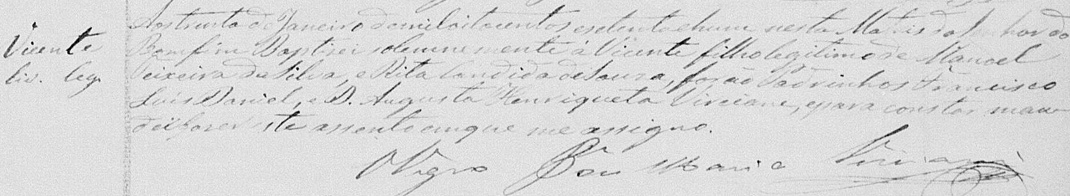 Vicente
liv. leg.
Aos trinta de Janeiro de mil oitocentos e setenta e hum nesta Matris do Senhor do
Bomfim Baptizei solemnemente a Vicente filho legitimo de Manoel
Teixeira da Silva, e Rita Candida de Souza, forão Padrinhos Francisco
Luis Daniel, e D. Augusta Henriqueta Viviane, e para constar man-
dei este assento em que me assigno.
O Vigro Maria Viviani